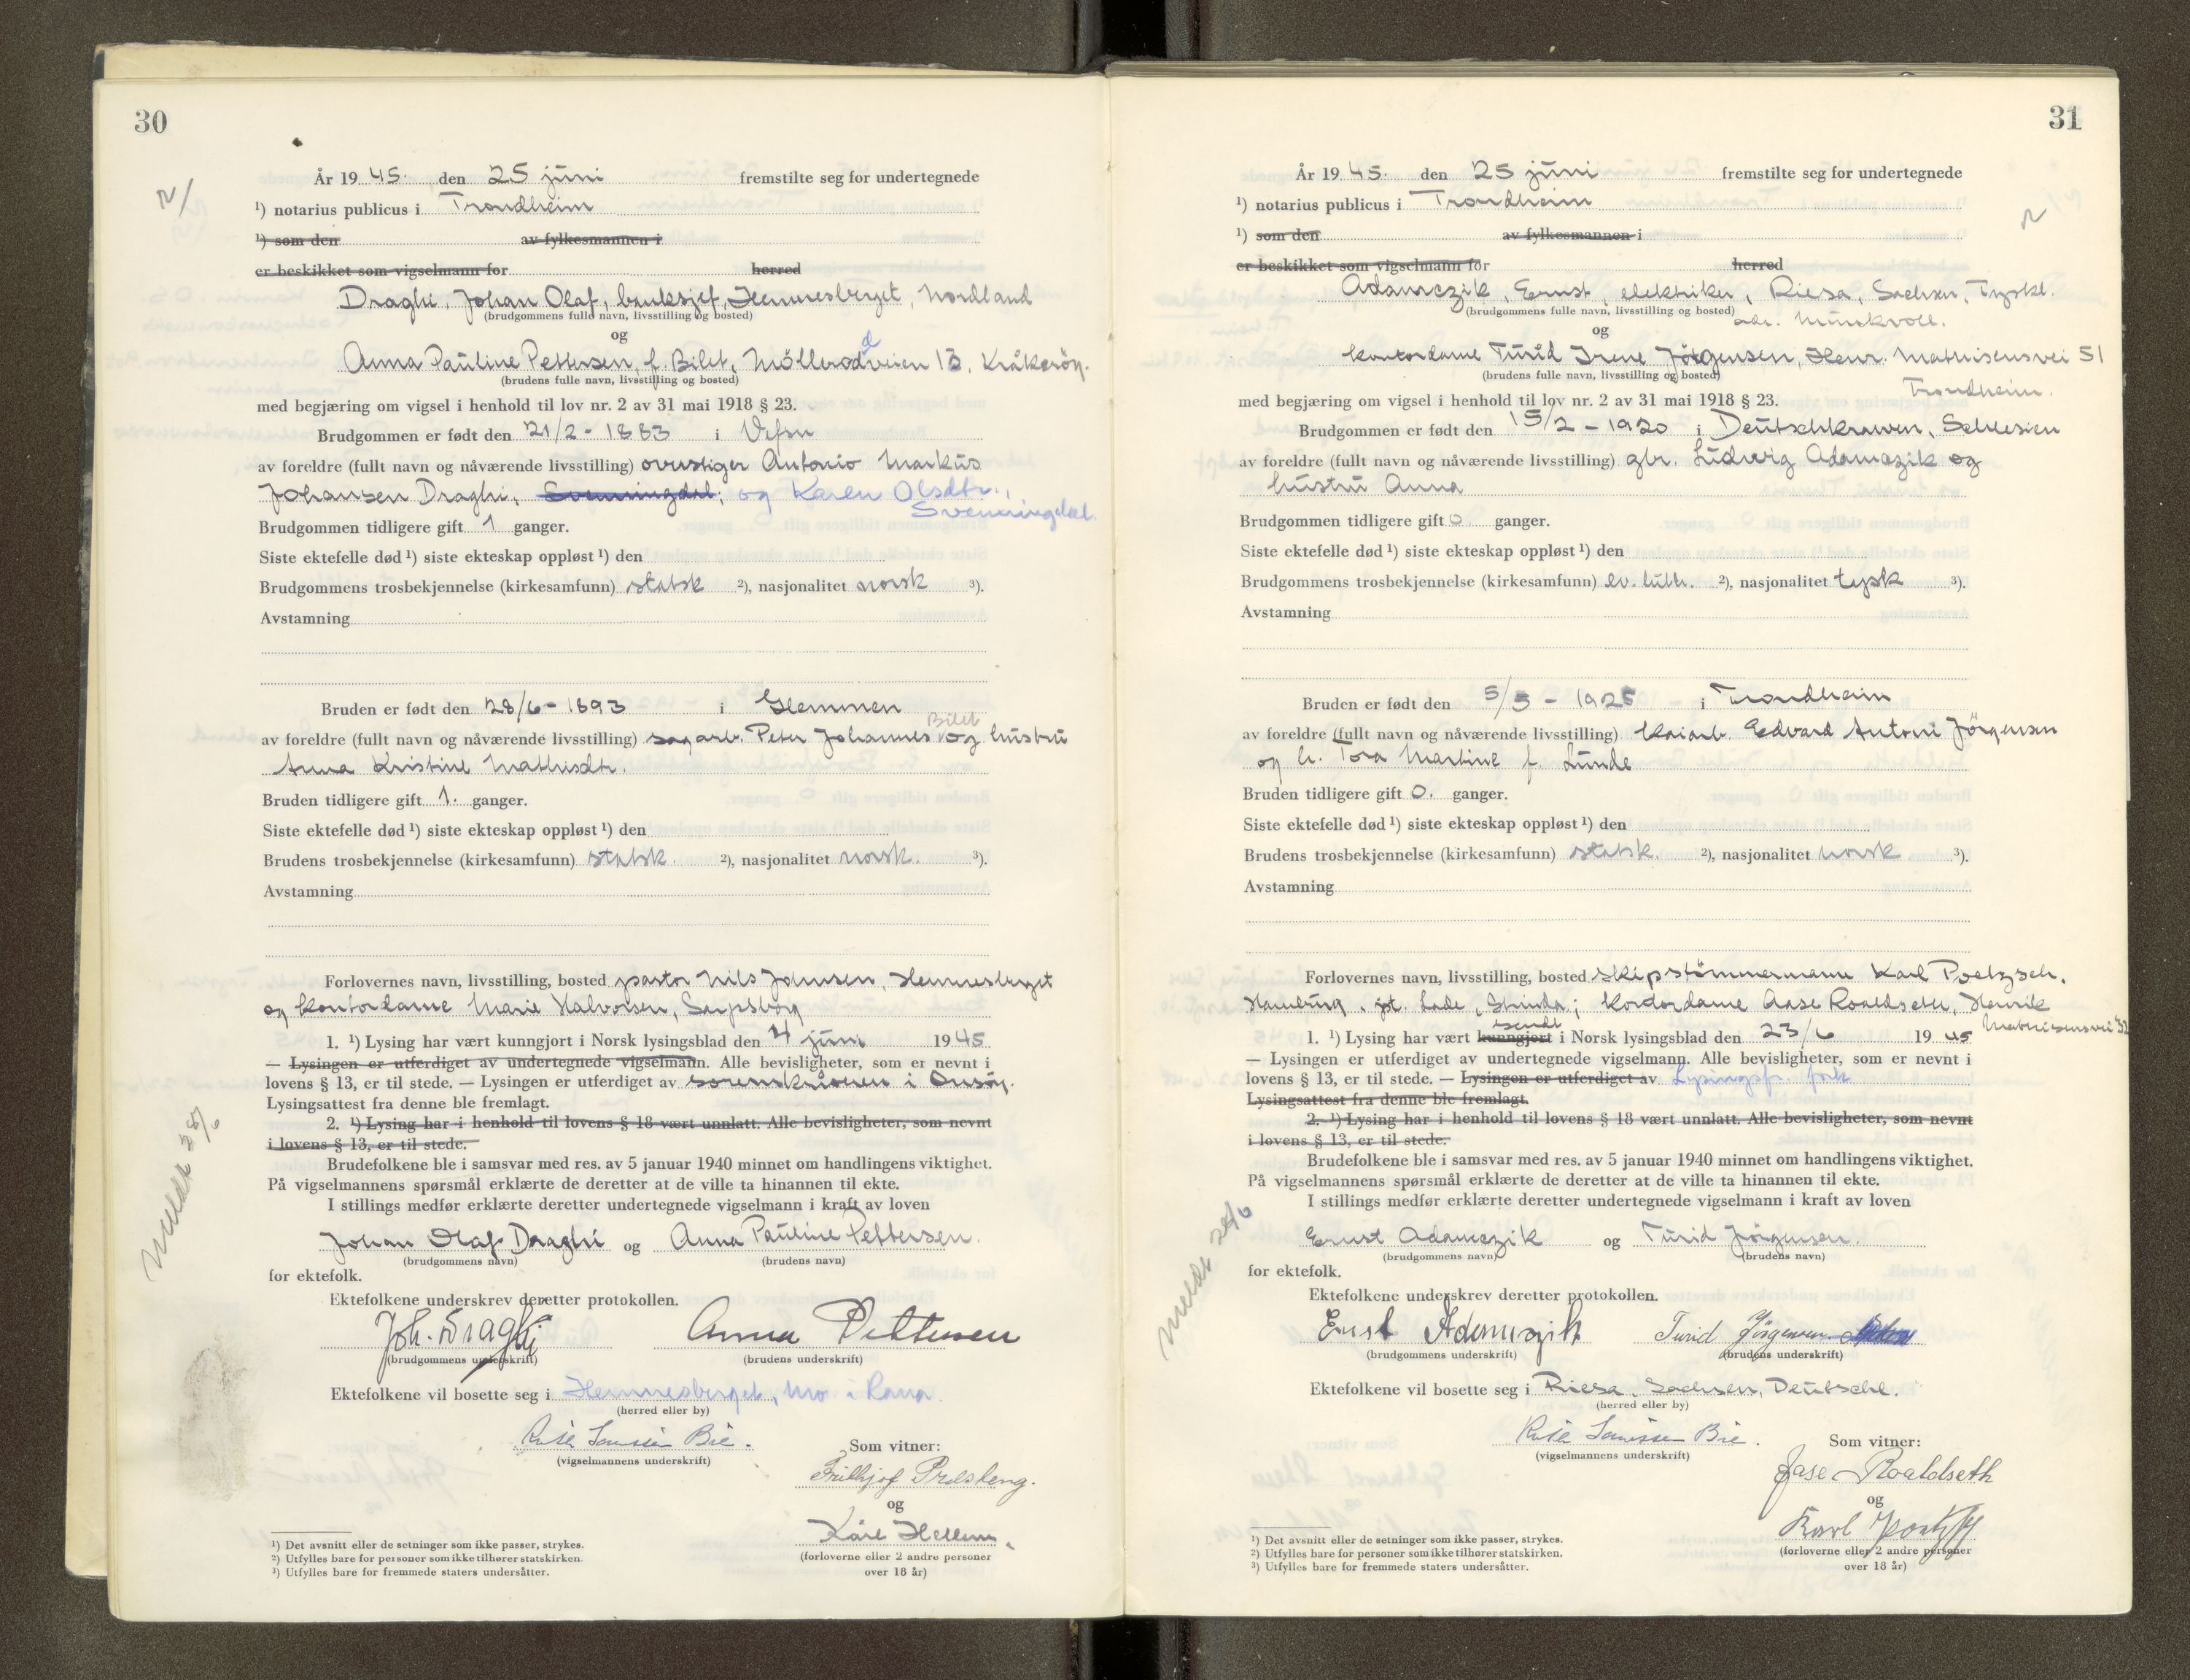 30
År 1945. den 25 juni fremstilte seg for undertegnede
¹) notarius publicus i Trondheim
¹) som den av fylkesmannen i
er beskikket som vigselmann for herred
Draghi, Johan Olaf, banksjef, Hemnesberget, Nordland
(brudgommens fulle navn, livsstilling og bosted)
og
Anna Pauline Pettersen, f. Bilet, 13, Kråkerøy.
(brudens fulle navn, livsstilling og bosted)
med begjæring om vigsel i henhold til lov nr. 2 av 31 mai 1918 § 23.
Brudgommen er født den 21/2 - 1883 i Vefsn
av foreldre (fullt navn og nåværende livsstilling) overstiger Antonio Markus
Johansen Draghi, Svenningdal; og Karen Olsdtr.,
Svenningdal.
Brudgommen tidligere gift 1 ganger.
Siste ektefelle død ¹) siste ekteskap oppløst ¹) den
Brudgommens trosbekjennelse (kirkesamfunn) statsk ²), nasjonalitet norsk ³).
Avstamning
Bruden er født den 28/6 - 1893 i Glemmen
Bilet
av foreldre (fullt navn og nåværende livsstilling) sagarb. Peter Johannes og hustru
Anna Kristine Mathisdtr.
Bruden tidligere gift 1. ganger.
Siste ektefelle død ¹) siste ekteskap oppløst ¹) den
Brudens trosbekjennelse (kirkesamfunn) statsk. ²), nasjonalitet norsk. ³).
Avstamning
Forlovernes navn, livsstilling, bosted pastor Nils Johnsen, Hemnesberget
og kontordame Marie Halvorsen, Sarpsborg
1. ¹) Lysing har vært kunngjort i Norsk lysingsblad den 4 juni 1945
— Lysingen er utferdiget av undertegnede vigselmann. Alle bevisligheter, som er nevnt i
lovens § 13, er til stede. — Lysingen er utferdiget av sorenskriveren i Onsøy.
Lysingsattest fra denne ble fremlagt.
2. ¹) Lysing har i henhold til lovens § 18 vært unnlatt. Alle bevisligheter, som nevnt
i lovens § 13, er til stede.
Brudefolkene ble i samsvar med res. av 5 januar 1940 minnet om handlingens viktighet.
På vigselmannens spørsmål erklærte de deretter at de ville ta hinannen til ekte.
I stillings medfør erklærte deretter undertegnede vigselmann i kraft av loven
Johan Olaf Draghi og Anna Pauline Pettersen.
(brudgommens navn) (brudens navn)
for ektefolk.
Ektefolkene underskrev deretter protokollen.
Joh. Draghi Anna Pettersen
(brudgommens underskrift) (brudens underskrift)
Ektefolkene vil bosette seg i Hemnesberget, Mo i Rana.
(herred eller by)
Bie.
(vigselmannens underskrift)
Som vitner:
Frithjof
og
Kåre
(forloverne eller 2 andre personer
over 18 år)
¹) Det avsnitt eller de setninger som ikke passer, strykes.
²) Utfylles bare for personer som ikke tilhører statskirken.
³) Utfylles bare for fremmede staters undersåtter.
Meldt 28/6
31
År 1945. den 25 juni fremstilte seg for undertegnede
¹) notarius publicus i Trondheim
¹) som den av fylkesmannen i
er beskikket som vigselmann for herred
Adamczik, Ernst, elektriker, Riesa, Sachsen, Tyskl.
(brudgommens fulle navn, livsstilling og bosted) adr. Munkvoll.
og
kontordame Turid Irene Jörgensen, Henr. Mathisensvei 51
(brudens fulle navn, livsstilling og bosted)
Trondheim.
med begjæring om vigsel i henhold til lov nr. 2 av 31 mai 1918 § 23.
Brudgommen er født den 15/2 - 1920 i Schlesien
av foreldre (fullt navn og nåværende livsstilling) gbr. Ludwig Adamczik og
hustru Anna
Brudgommen tidligere gift 0 ganger.
Siste ektefelle død ¹) siste ekteskap oppløst ¹) den
Brudgommens trosbekjennelse (kirkesamfunn) ev. luth. ²), nasjonalitet tysk ³).
Avstamning
Bruden er født den i Trondheim
av foreldre (fullt navn og nåværende livsstilling) kaiarb. Edvard Antoni Jörgensen
og h. Tora Martine f. Lunde
Bruden tidligere gift 0. ganger.
Siste ektefelle død ¹) siste ekteskap oppløst ¹) den
Brudens trosbekjennelse (kirkesamfunn) statsk. ²), nasjonalitet norsk ³).
Avstamning
Forlovernes navn, livsstilling, bosted skipstömmermann Karl Poetzsch.
Hamburg, pt. Lade, Strinda; kordordame Aase Roaldseth, Henrik
Mathisensvei 32
sendt
1. ¹) Lysing har vært kunngjort i Norsk lysingsblad den 23/6 1945
— Lysingen er utferdiget av undertegnede vigselmann. Alle bevisligheter, som er nevnt i
lovens § 13, er til stede. — Lysingen er utferdiget av Lysingsfr.
Lysingsattest fra denne ble fremlagt.
2. ¹) Lysing har i henhold til lovens § 18 vært unnlatt. Alle bevisligheter, som nevnt
i lovens § 13, er til stede.
Brudefolkene ble i samsvar med res. av 5 januar 1940 minnet om handlingens viktighet.
På vigselmannens spørsmål erklærte de deretter at de ville ta hinannen til ekte.
I stillings medfør erklærte deretter undertegnede vigselmann i kraft av loven
Ernst Adamczik og Turid Jörgensen.
(brudgommens navn) (brudens navn)
for ektefolk.
Ektefolkene underskrev deretter protokollen.
Ernst Adamczik Turid Jörgensen
(brudgommens underskrift) (brudens underskrift)
Ektefolkene vil bosette seg i Riesa, Sachsen, Deutschl.
(herred eller by)
Bie.
(vigselmannens underskrift)
Som vitner:
Aase Roaldseth
og
Karl
(forloverne eller 2 andre personer
over 18 år)
¹) Det avsnitt eller de setninger som ikke passer, strykes.
²) Utfylles bare for personer som ikke tilhører statskirken.
³) Utfylles bare for fremmede staters undersåtter.
Meldt 28/6